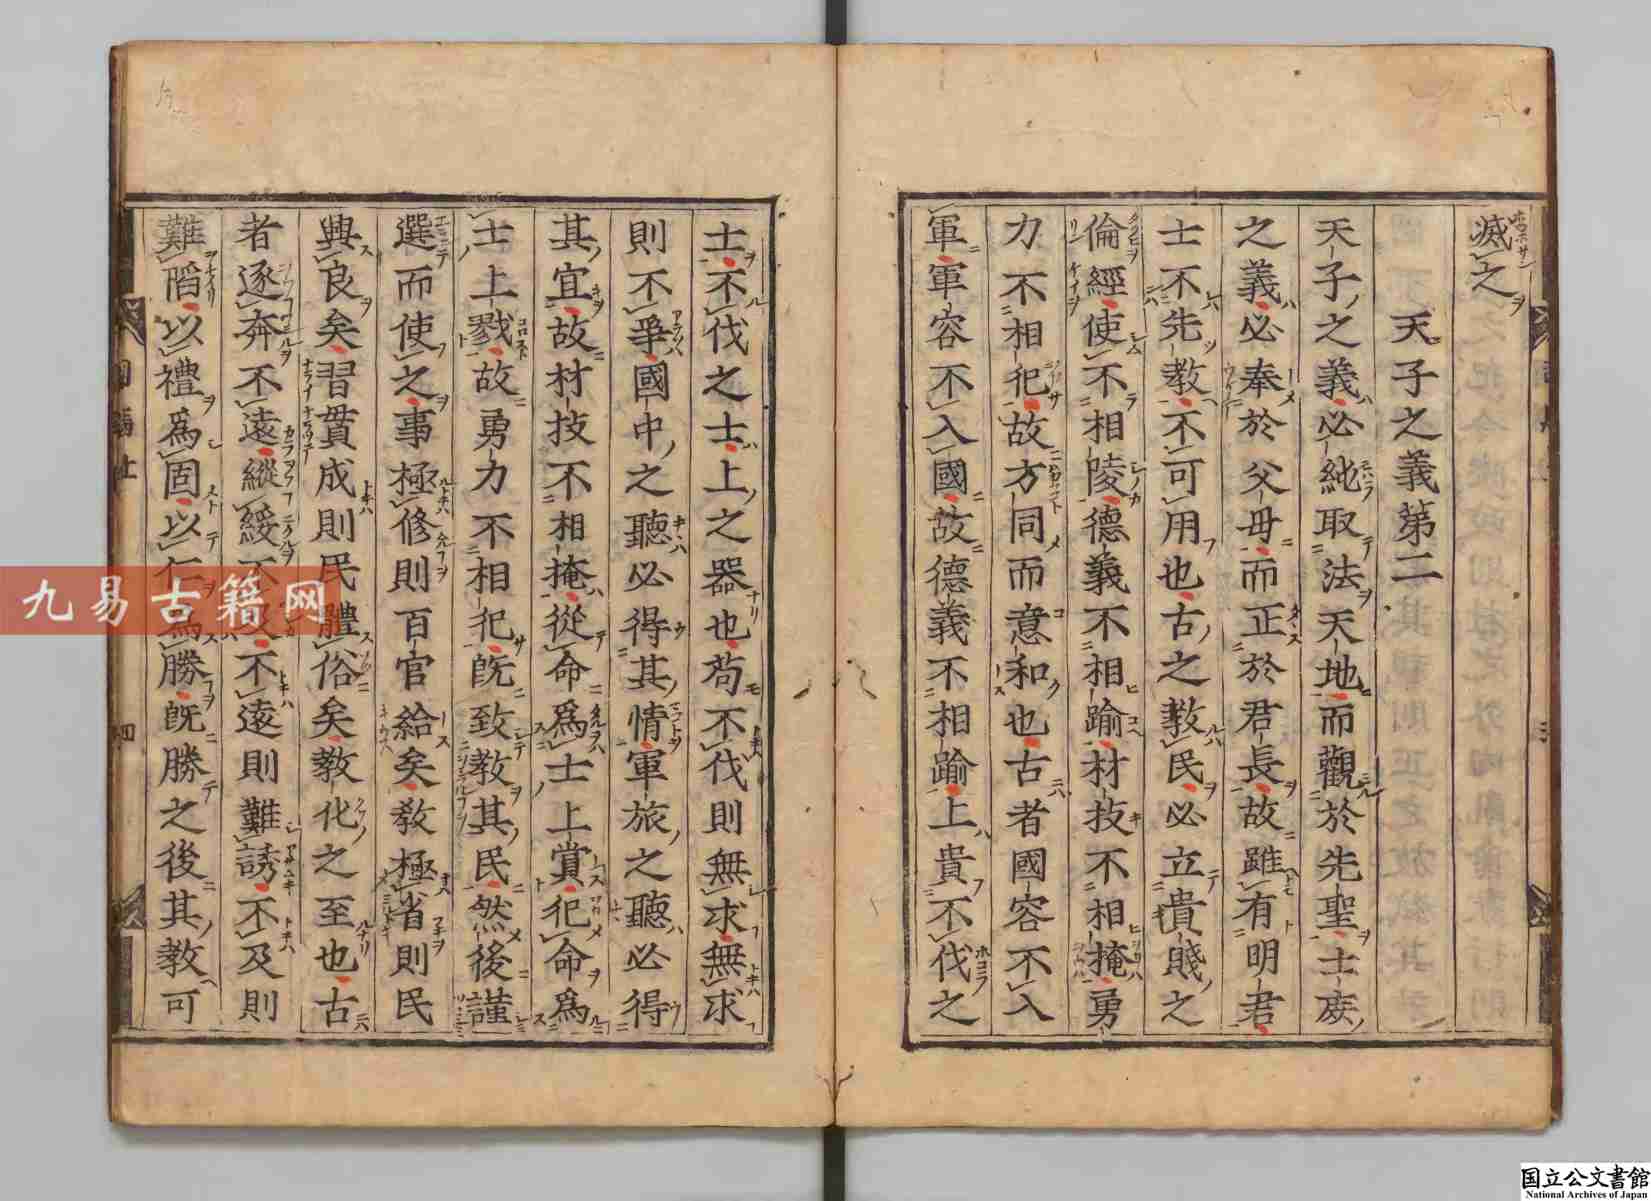 滅之
天子之義第二
天子之義必純取法天地而觀於先聖士庶
之義必奉於父母而正於君長故雖有明君
士不先教不可用也古之教民必立貴賤之
倫經使不相陵德義不相踰材技不相掩勇
力不相犯故方同而意和也古者國容不入
軍軍容不入國故德義不相踰上貴不伐之
士不伐之士上之器也苟不伐則無求無求
則不爭國中之聽必得其情軍旅之聽必得
其宜故材技不相掩從命爲士上賞犯命爲
士上戮故勇力不相犯既致教其民然後謹
選而使之事極修則百官給矣教極省則民
興良矣習貫成則民體俗矣教化之至也古
者逐奔不遠縱綏不及不遠則難誘不及則
難陷以禮爲固以仁爲勝既勝之後其教可
九易古籍网
国立公文書館
National Archives of Japan